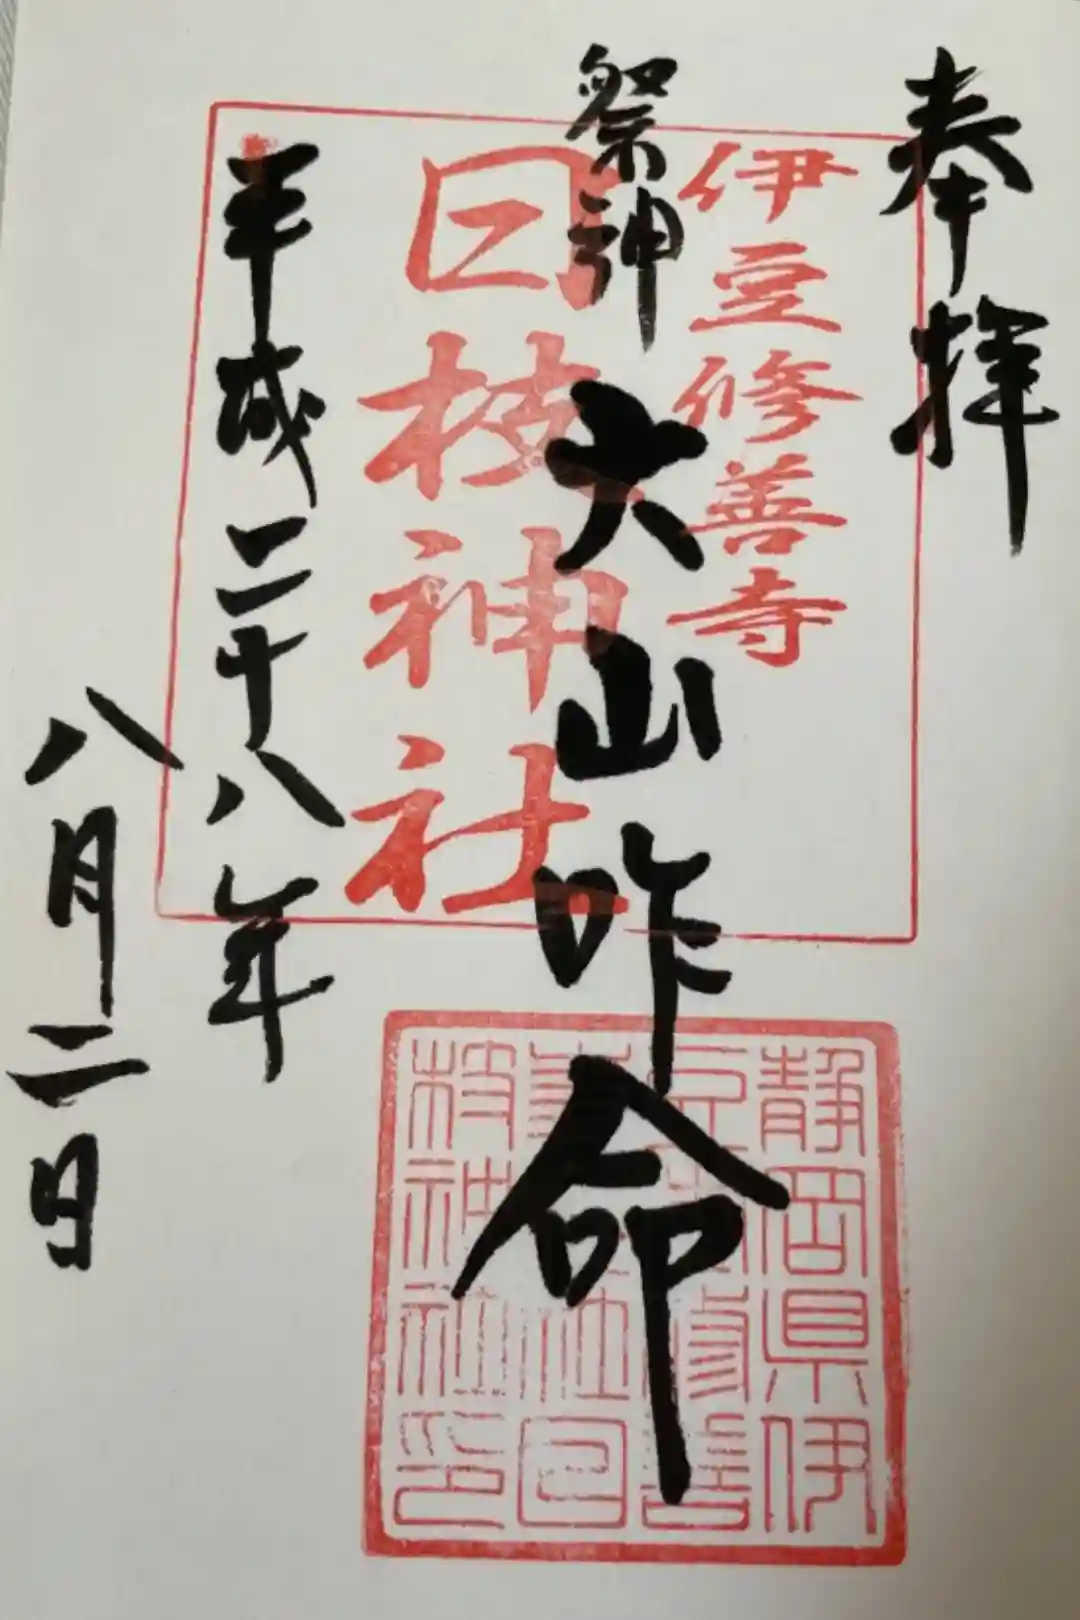 奉拝
伊豆修善寺
祭神 大山咋命
日枝神社
平成二十八年
八月二日
静岡県伊
豆修善
寺社日
枝神社印